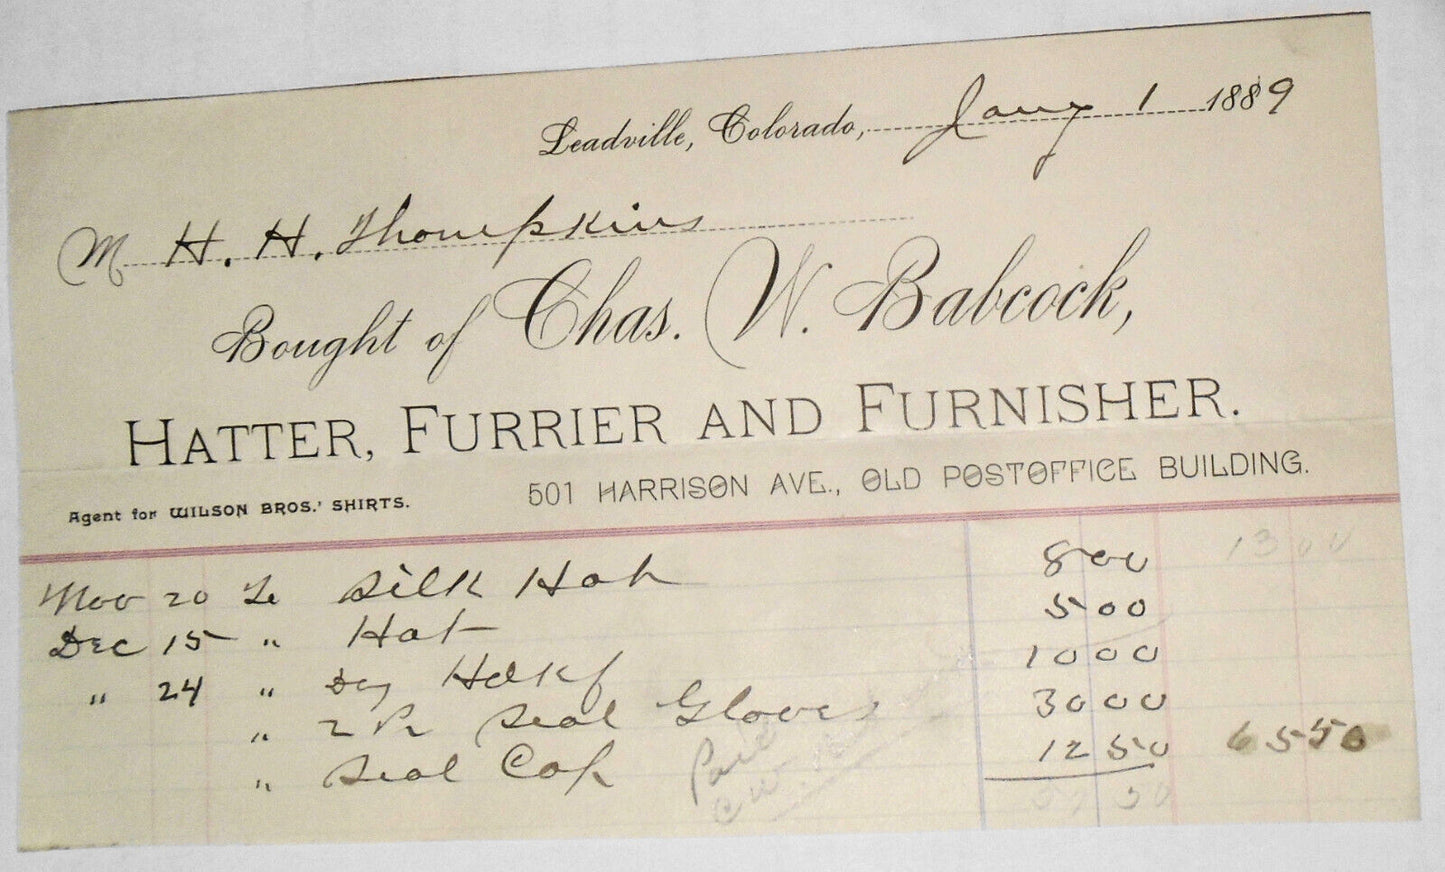 Leadville, Colorado, Jany 1 1889
M H. H. Thompkins
Bought of Chas. W. Babcock,
HATTER, FURRIER AND FURNISHER.
Agent for WILSON BROS.' SHIRTS. 501 HARRISON AVE., OLD POSTOFFICE BUILDING.
Nov 20 To Silk Hat 8 00 13 00
Dec 15 " Hat 5 00
" 24 " Doz Hdkf 10 00
" 2 Pr Seal Gloves 30 00
" Seal Cap 12 50 65 50
Paid
C.W.
50